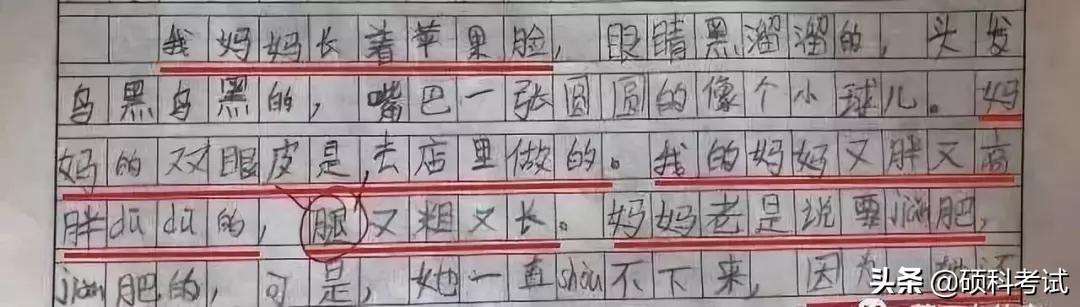 我妈妈长着苹果脸，眼睛黑溜溜的，头发
乌黑乌黑的，嘴巴一张圆圆的像个小球儿。妈
妈的双眼皮是去店里做的。我的妈妈又胖又高
胖dū dū的，腿又粗又长。妈妈老是说要jiǎn肥，
jiǎn肥的，可是，她一直shòu不下来，因为
头条 @硕科考试